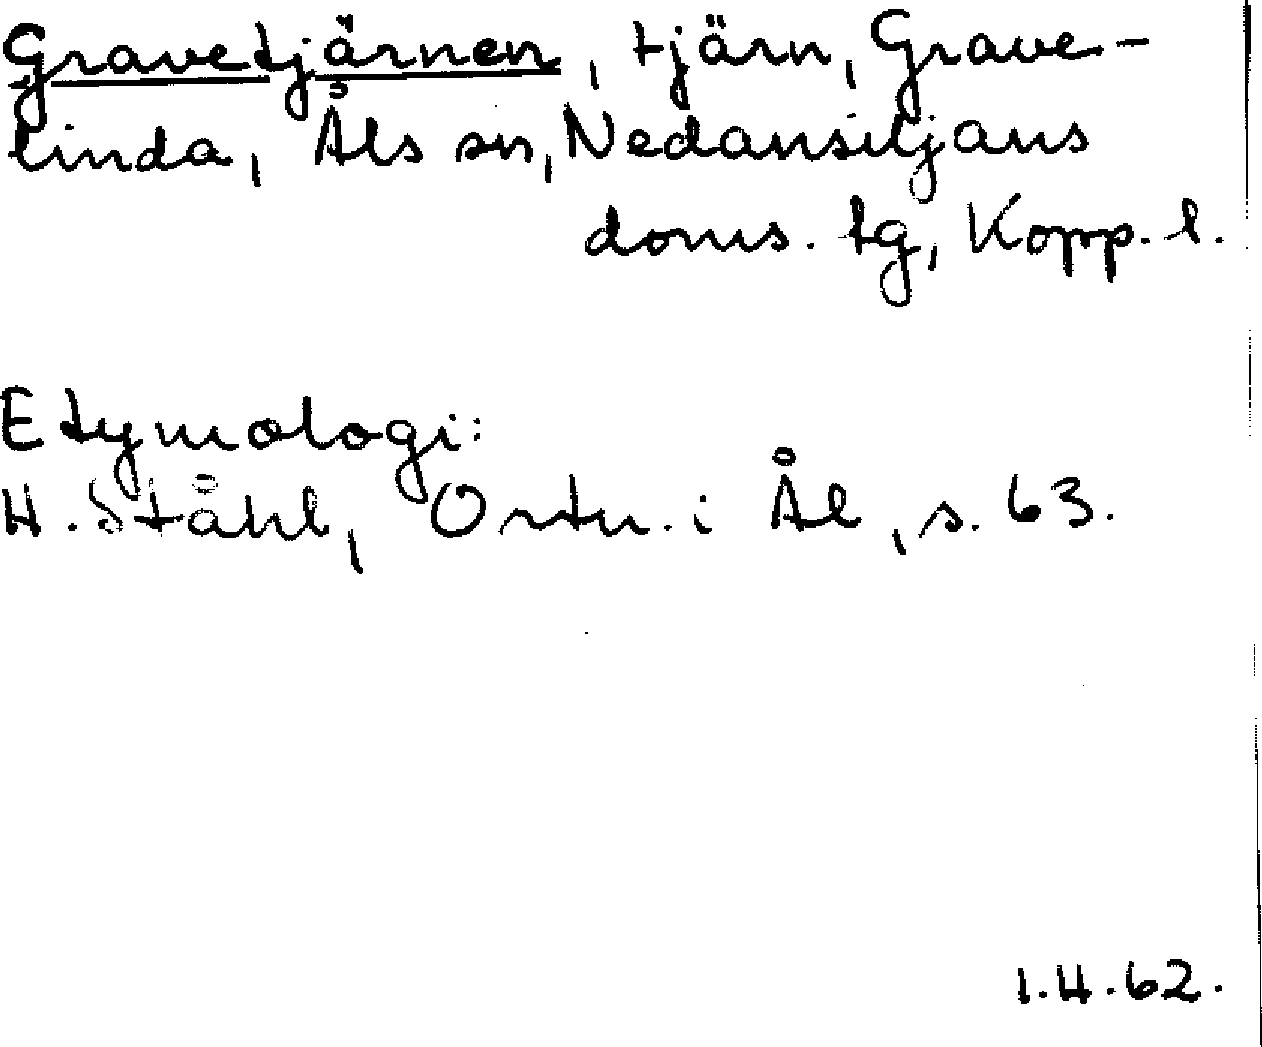 Gravetjärnen, tjärn, Grave-
linda, Åls sn, Nedansiljans
doms. tg, Kopp. l.
Etymologi:
H. Ståhl, Ortn. i Ål, s. 63.
I.H. 62.